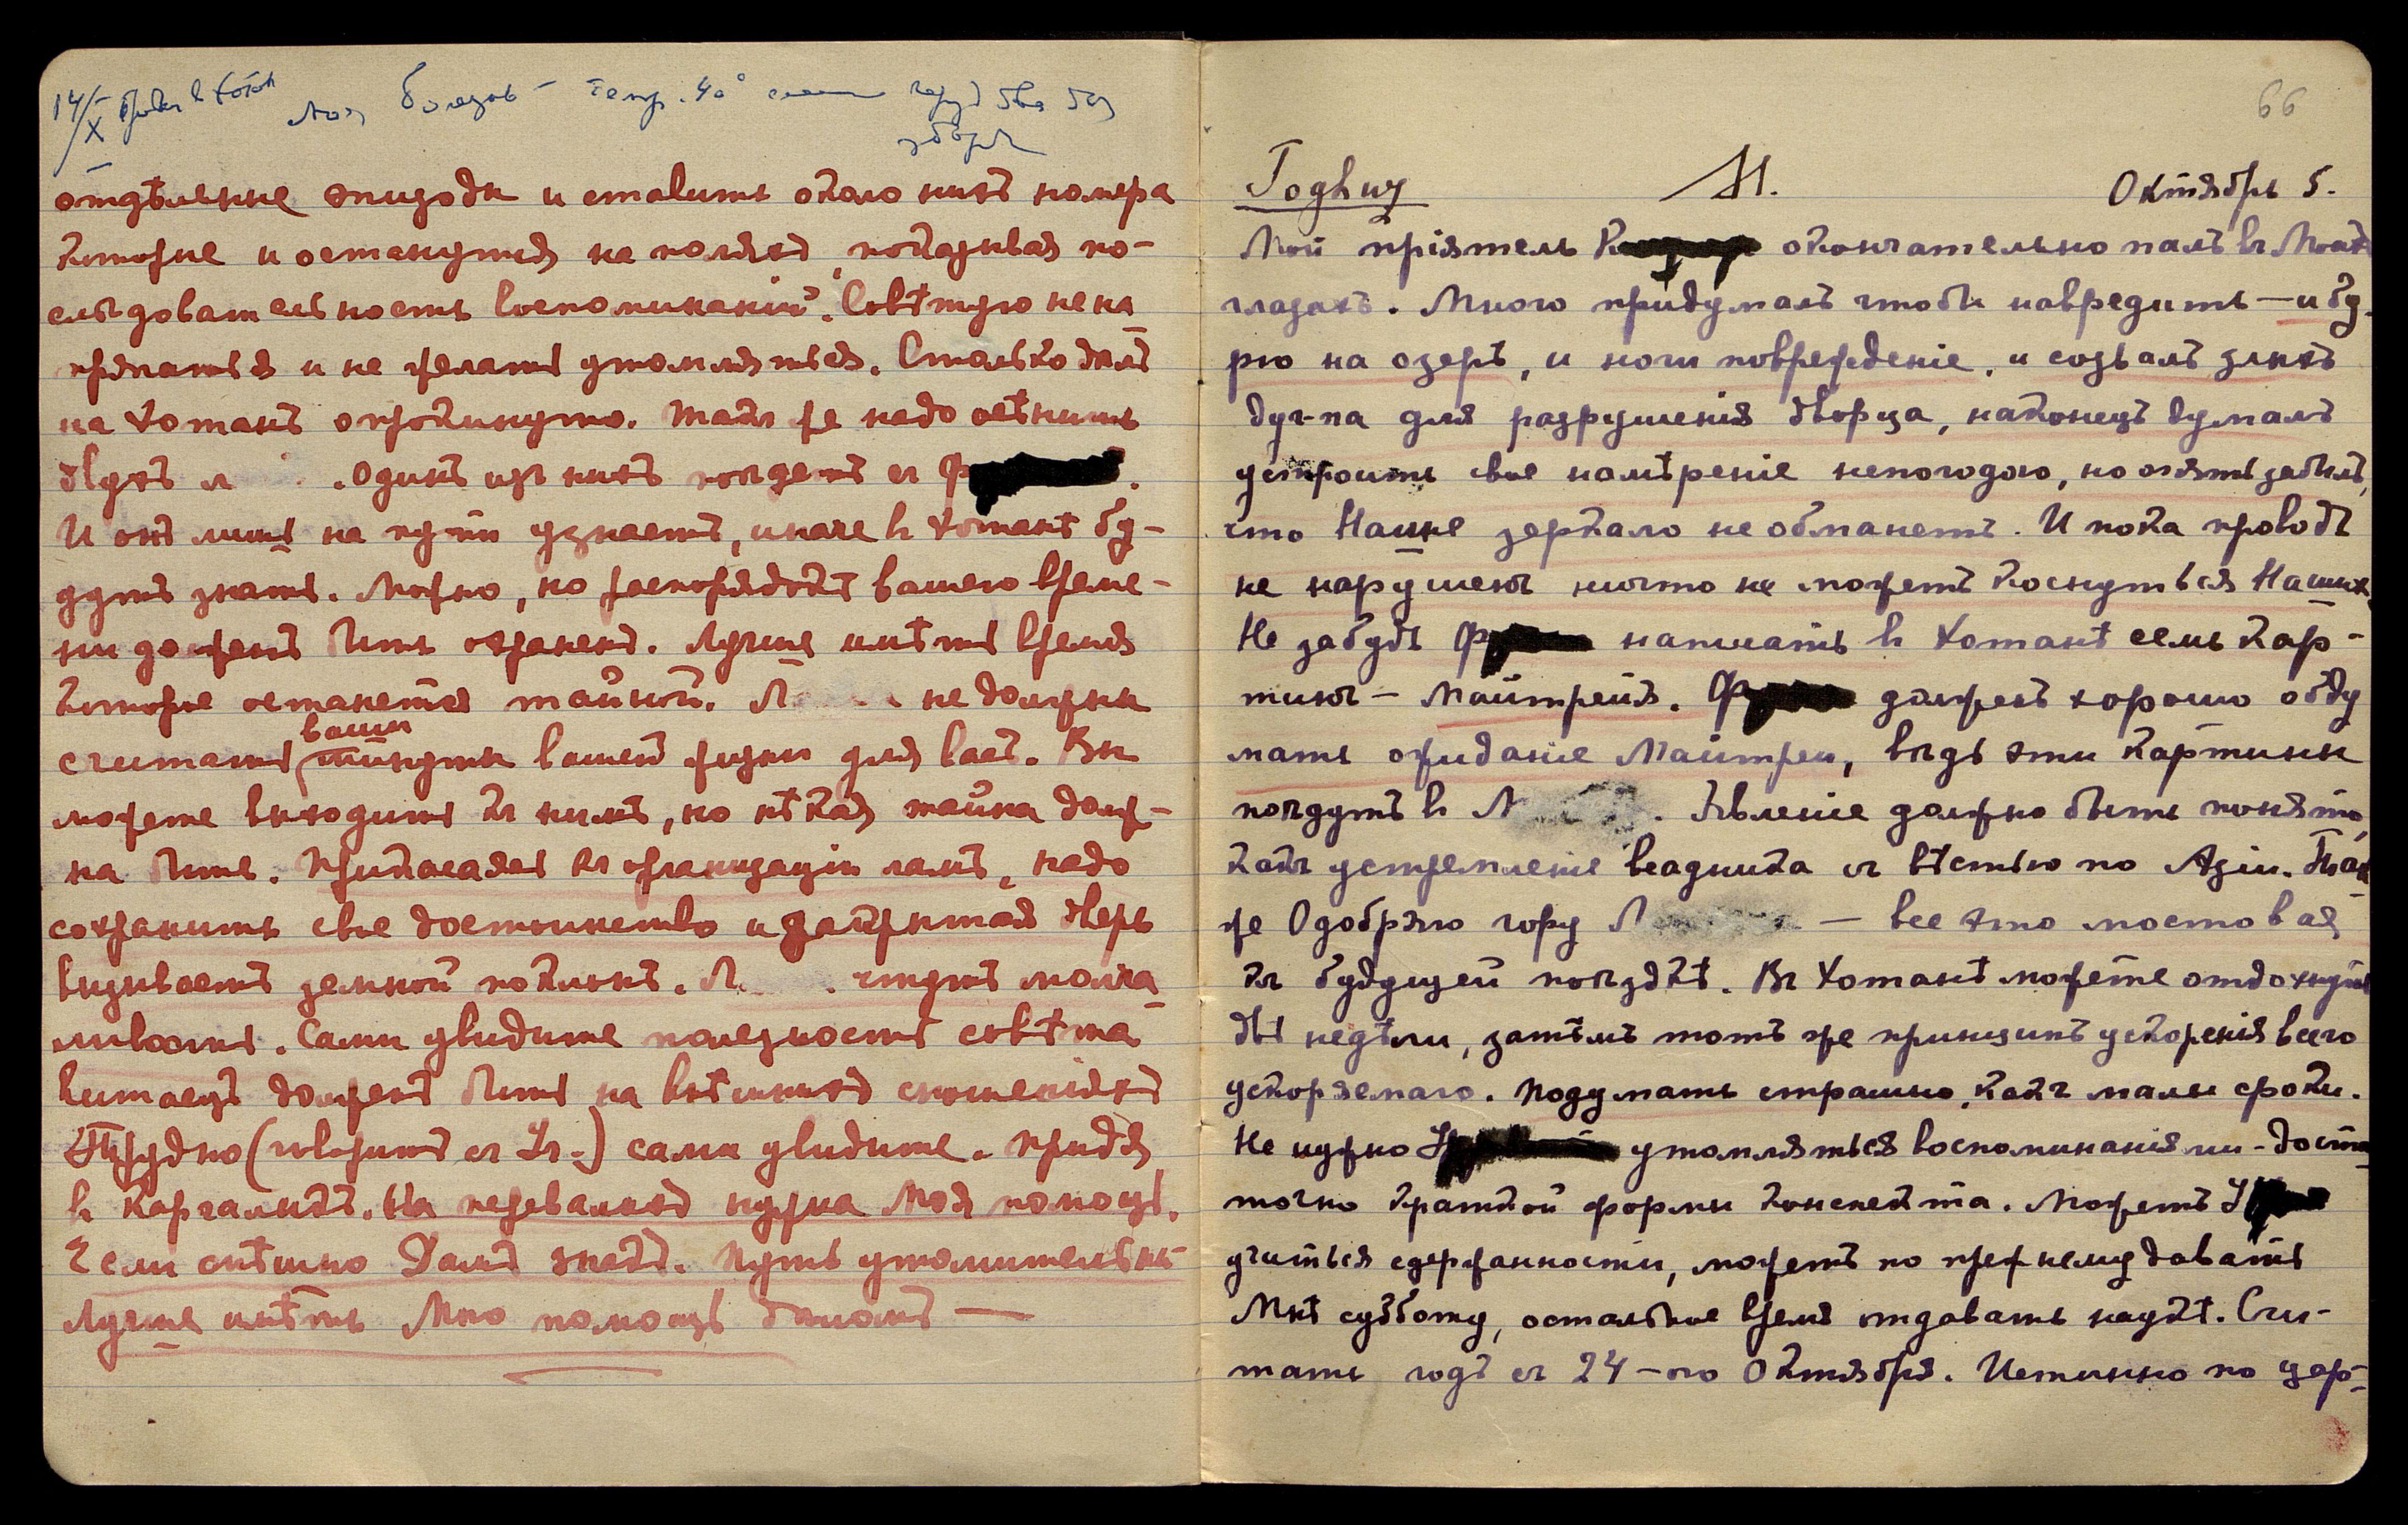 14/X
Моя болезнь – темр. 40°
отдѣльные эпизоды и ставить около нихъ номера
которые и останутся на поляхъ, показывая по-
слѣдовательность воспоминаній. Совѣтую не на
прягаться и не желать утомляться. Столько далъ
на Хотанъ опрокинуто. Также надо осѣнить
двухъ л . Одинъ изъ нихъ поѣдетъ съ Ф
И онъ лишь на пути узнаетъ, иначе въ Хотанѣ бу-
дутъ знать. Можно, но распорядокъ вашего време-
ни долженъ быть охраненъ. Лучше имѣть время
которое останется тайной. Л не должны
считать ваши минуты вашей жизни для васъ. Вы
можете выходить къ нимъ, но нѣкая тайна долж-
на быть. Прикасаясь къ организаціи ламъ, надо
сохранить свое достоинство и закрытая дверь
вызываетъ земной поклонъ. Л. чтутъ молча
ливость. Сами увидите полезность совѣта
Китаецъ долженъ быть на внѣшнихъ сношеніяхъ
Трудно (говорить съ Ур.) сами увидите. Придя
въ Каргалыкъ. На перевалахъ нужна Моя помощь.
Если спѣшно Дамъ знакъ. Путь утомительнѣ
Лучше имѣть Мою помощь —
66
М. Октябрь 5.
Мой пріятель К окончательно палъ въ Моихъ
глазахъ. Много придумалъ чтобы навредить — и бу
рю на озерѣ, и ноги поврежденіе, и созвалъ злыхъ
дуг-па для разрушенія дворца, наконецъ думалъ
устроить свое намѣреніе непогодою, но опять забылъ,
что Наше зеркало не обманетъ. И пока проводъ
не нарушенъ ничто не можетъ коснуться Нашихъ
Не забудь Ф написать въ Хотанѣ семь кар-
тинъ – Майтрейя. Ф долженъ хорошо обду
мать ожиданіе Майтреи, вѣдь эти картины
поѣдутъ въ Л . Явленіе должно быть понято,
какъ устремленіе всадника съ вѣстью по Азіи. Так
же Одобряю гору Л — все это мостовая
къ будущей поѣздкѣ. Въ Хотанѣ можете отдохнуть
двѣ недѣли, затѣмъ тотъ же принципъ ускоренія всего
ускоряемаго. Подумать страшно, какъ малы сроки.
Не нужно У утомляться воспоминаніями – доста
точно краткой формы конспекта. Можетъ У
учиться сдержанности, можетъ по прежнему давать
Мнѣ субботу, остальное время отдавать наукѣ. Счи-
тать годъ съ 24-ого Октября. Истинно по зер-